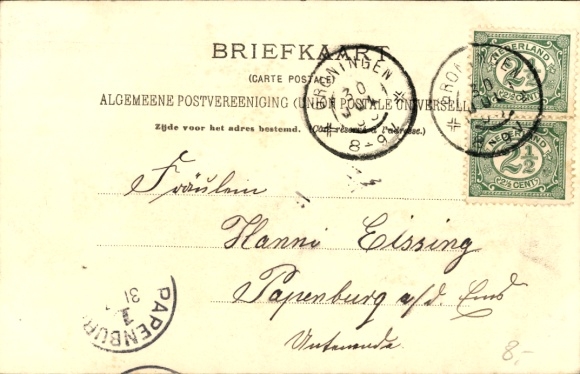 BRIEFKAART
(CARTE POSTALE)
ALGEMEENE POSTVEREENIGING (UNION POSTALE UNIVERSELLE)
Zijde voor het adres bestemd. (Côté réservé à l'adresse.)
GRONINGEN
30
8-9V
30
NEDERLAND
2½
(2½ CENT)
NEDERLAND
2½
(2½ CENT)
Fräulein
Hanni Eissing
Papenburg a/d. Ems
Untenende
PAPENBURG
31
1
8,-